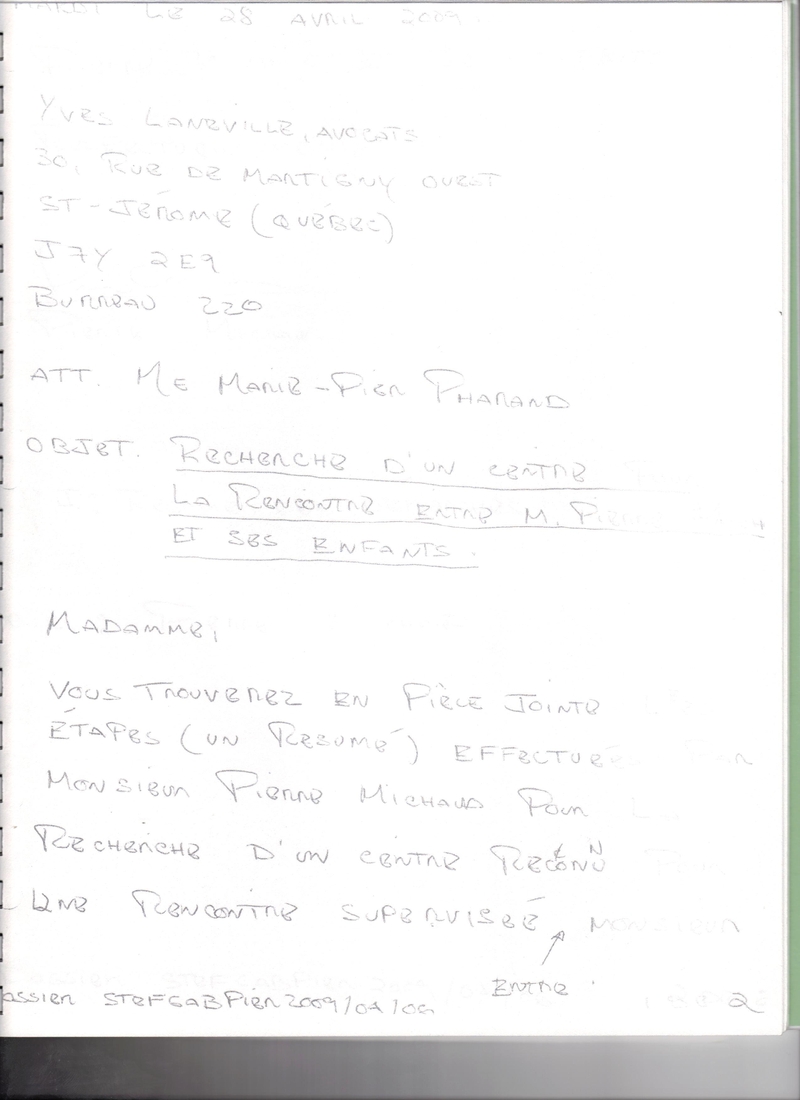 MARDI LE 28 AVRIL 2009.
YVES LANEVILLE, AVOCATS
30, RUE DE MARTIGNY OUEST
ST-JÉROME (QUÉBEC)
J7Y 2E9
BURREAU 220
ATT. ME MARIE-PIER PHARAND
OBJET. RECHERCHE D'UN CENTRE
LA RENCONTRE ENTRE M. PIERRE
ET SES ENFANTS.
MADAMME,
VOUS TROUVEREZ EN PIÈCE JOINTE
ÉTAPES (UN RESUMÉ) EFFECTUÉ
MONSIEUR PIERRE MICHAUD POUR
RECHERCHE D'UN CENTRE RECONNU
UNE RENCONTRE SUPERVISEÉ MONSIEUR
ENTRE
STEFGABPIER2009/04/06 2